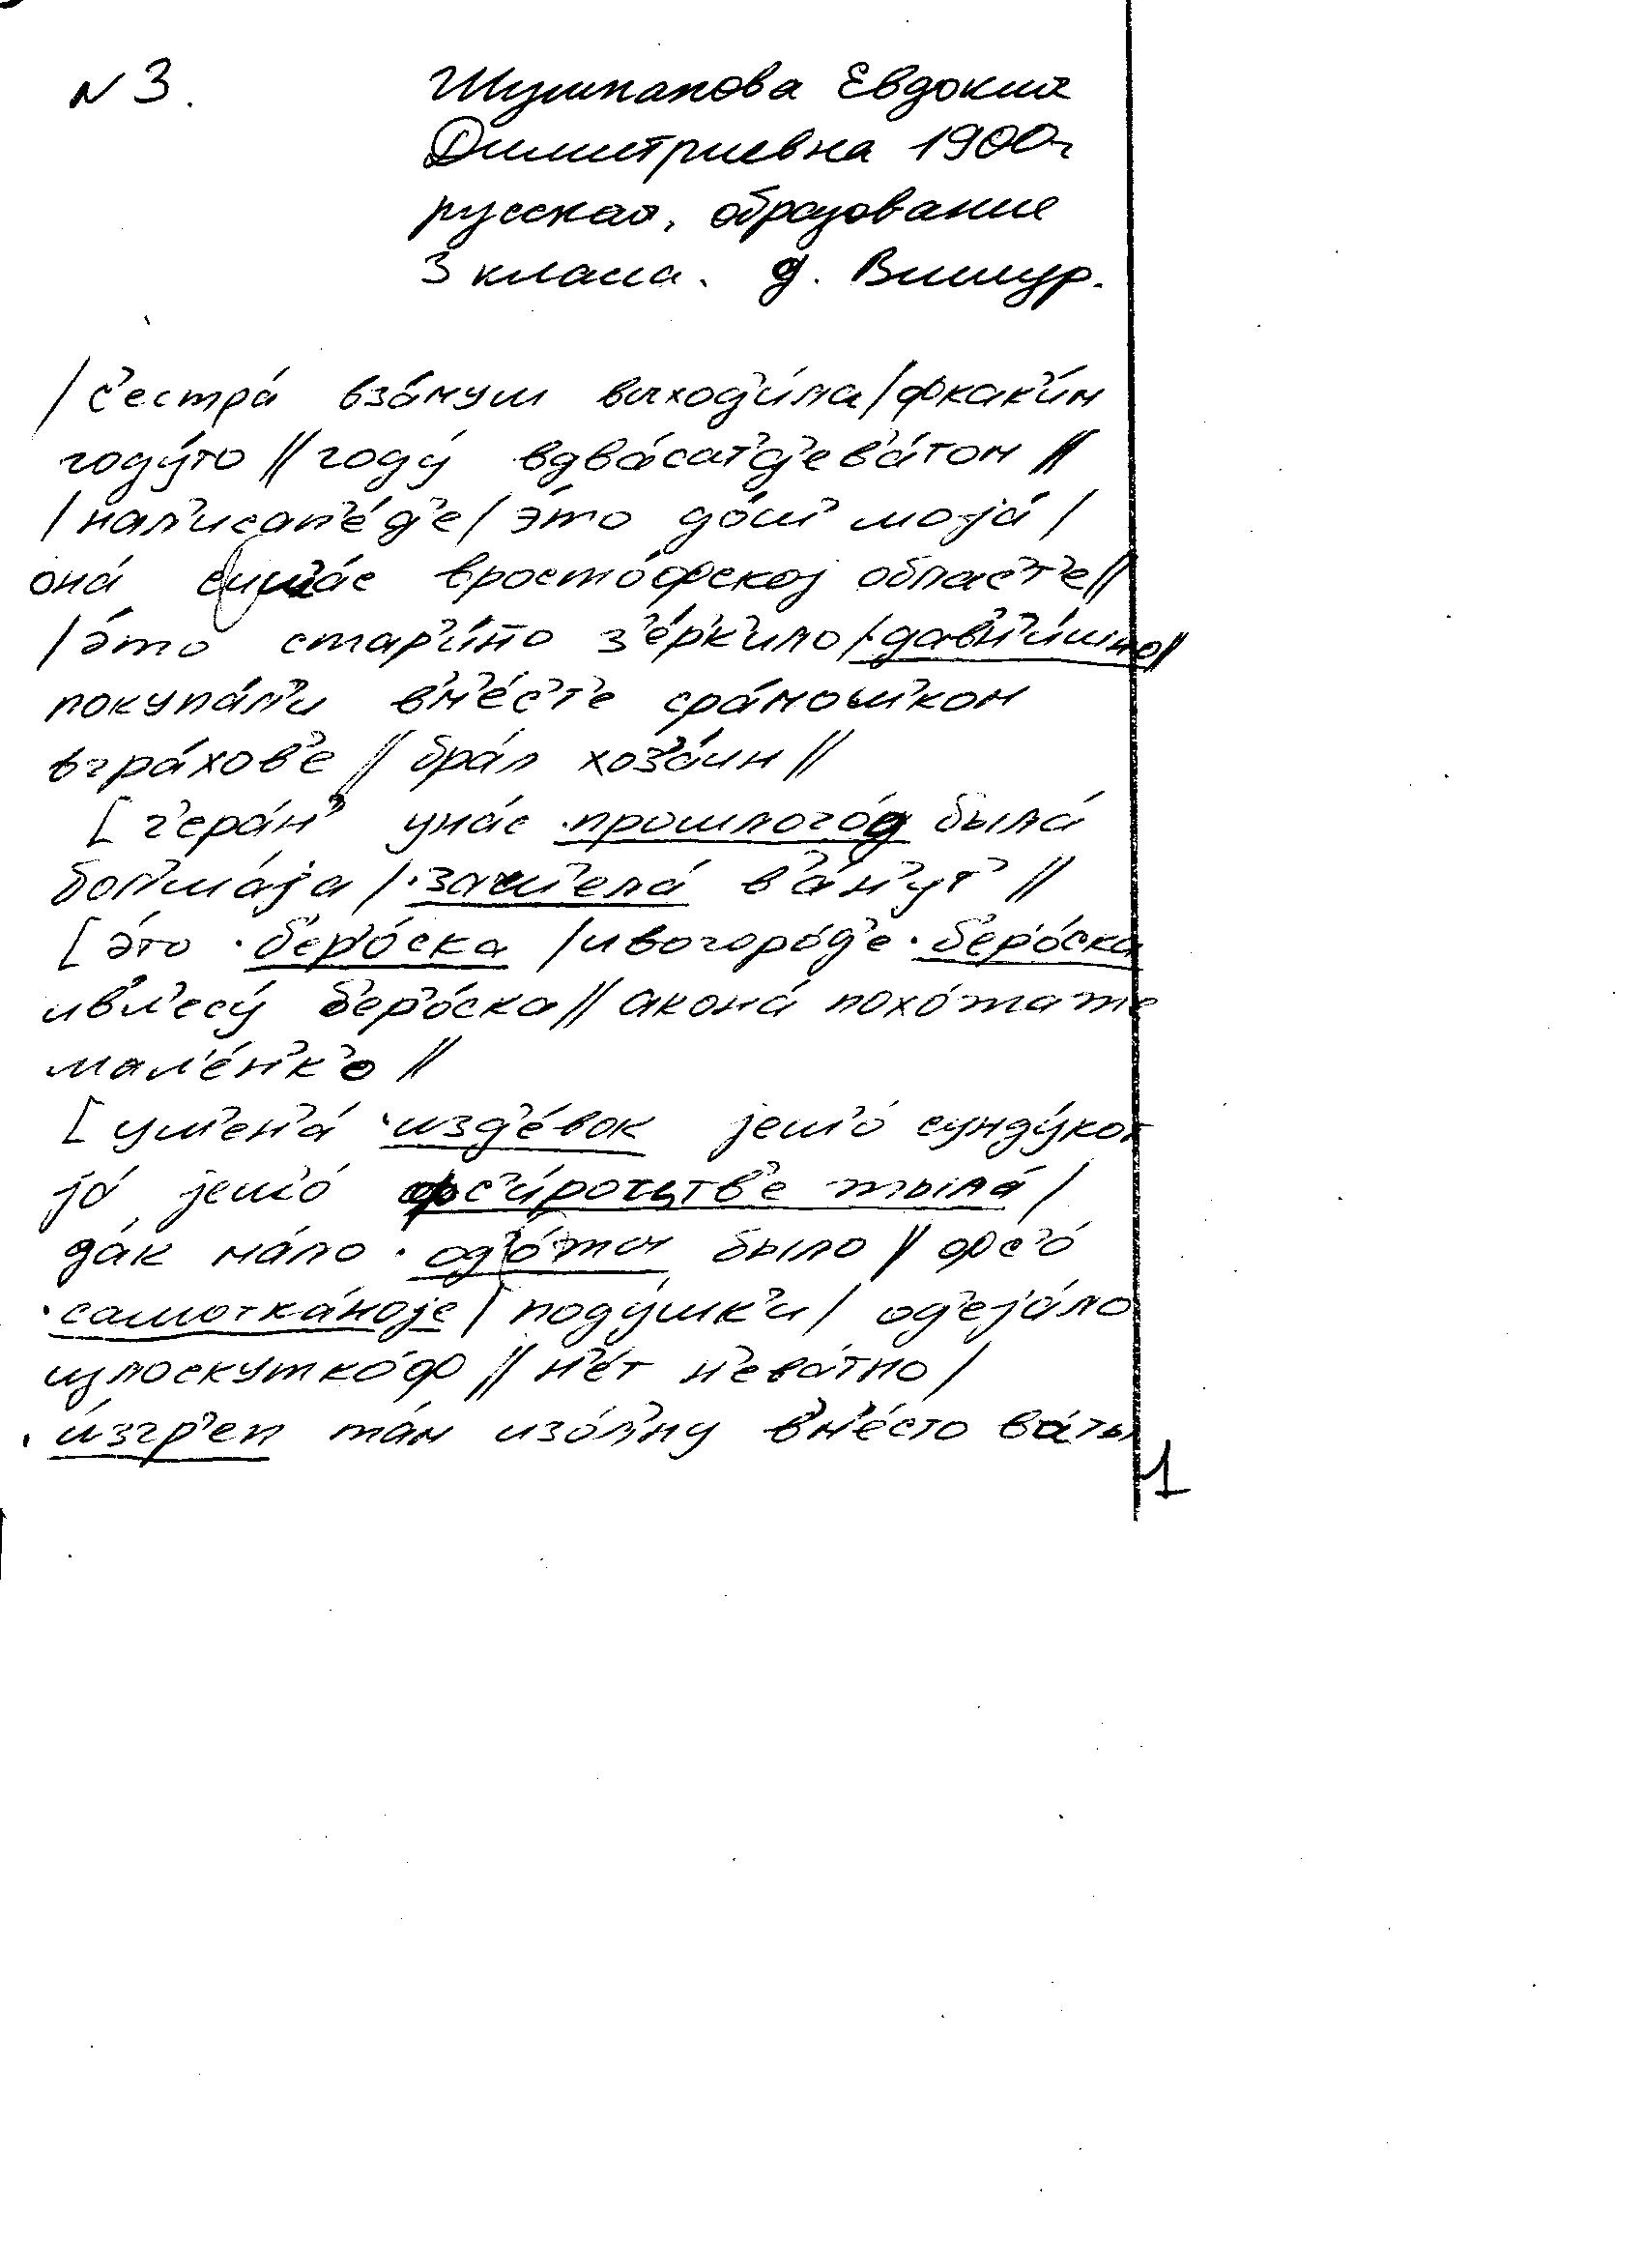 N 3. Шушпанова Евдокия
Димитриевна 1900 г
русская, образование
3 класса. д. Вишур.
/с'естра́ вза́муш выход'и́ла/фкак'и́м
году́то // году́ вдва́сат'д'ев'а́том //
/нап'исап'е́д'е/ э́то до́ш' моја́ /
она́ сиш'а́с вросто́фској облас'т'е//
/э́то стар'и́но з'е́рк'ило/·давн'и́шно//
покупа́л'и вм'е́с'т'е сра́мошком
вгра́хов'е // бра́л хоз'а́ин //
[г'ера́н' уна́с ·прошлого́д была́
бол'ша́ја /·зач'ела́ в'а́н'ут' //
[э́то ·б'ер'о́ска /ивогоро́д'е ·б'ер'о́ска
ивл'есу́ б'ер'о́ска// акона́ похо́жа то́же
мал'е́н'к'о //
[ум'ен'а́ ·изд'е́вок јеш'о́ сунду́кот
ја́ јеш'о́ фс'и́роцтв'е жыла́ /
да́к ма́ло ·од'о́жы было // фс'о́
·самотка́ноје / поду́шк'и / од'еја́ло
излоскутко́ф // н'е́т н'ева́тно /
·и́згр'еп та́м изо́л'ну вм'е́сто ва́ты
1